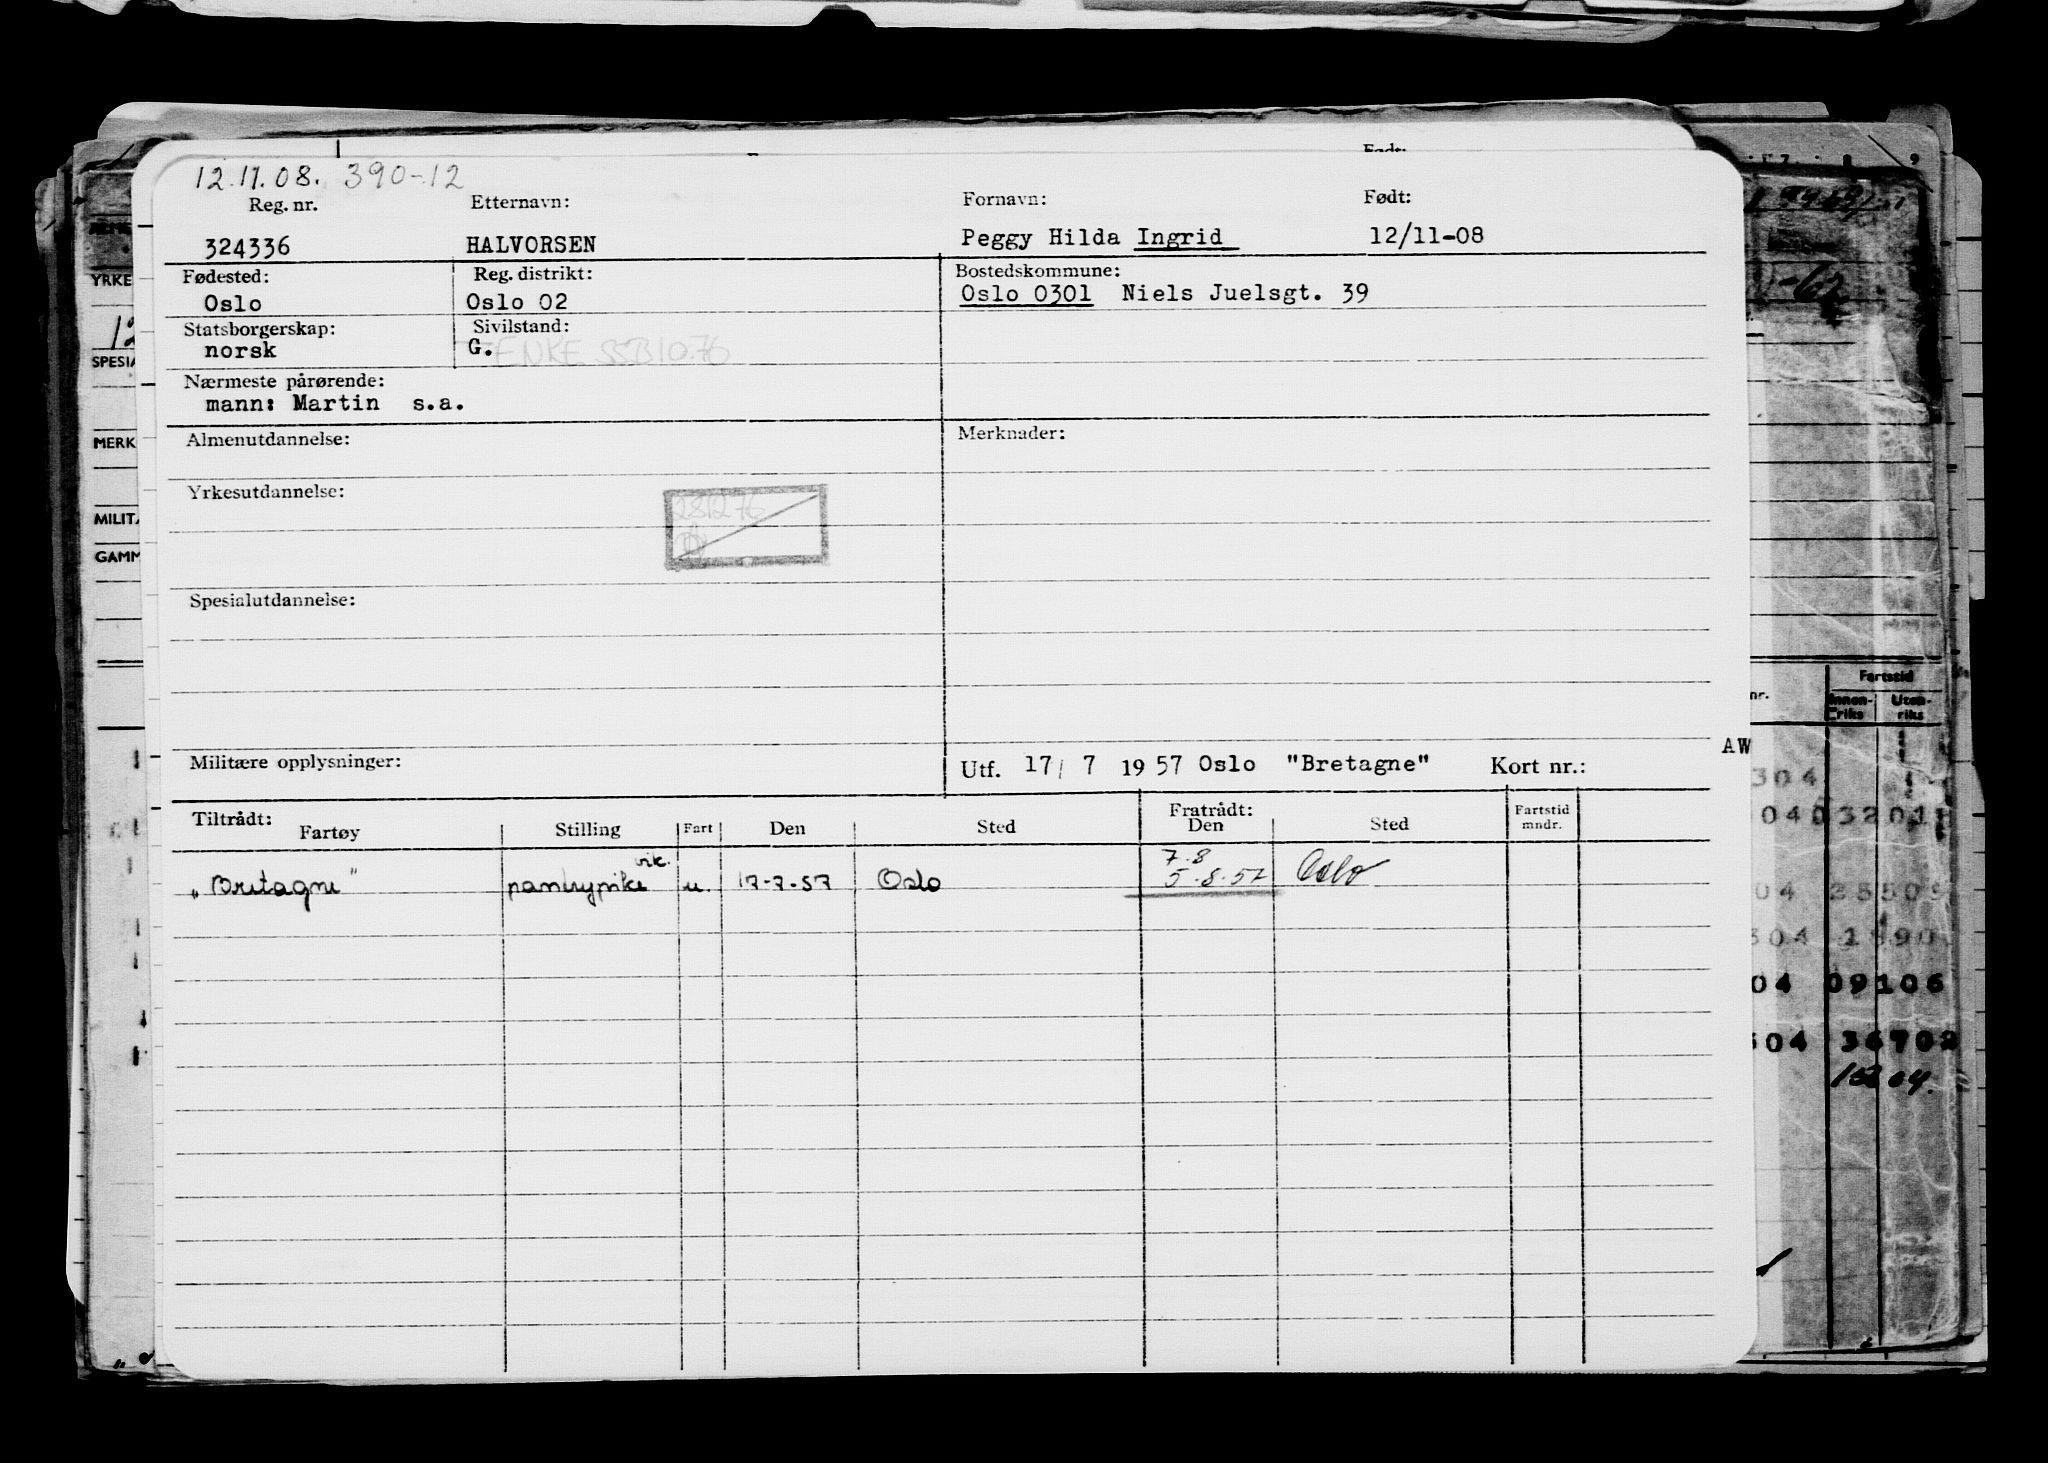 Født:
12.11.08. 390-12
Reg. nr. Etternavn: Fornavn: Født:
324336 HALVORSEN Peggy Hilda Ingrid 12/11-08
Fødested: Reg. distrikt: Bostedskommune:
Oslo Oslo 02 Oslo 0301 Niels Juelsgt. 39
Statsborgerskap: Sivilstand:
norsk G. ENKE SSB 10.76
Nærmeste pårørende:
mann: Martin s.a.
Almenutdannelse: Merknader:
Yrkesutdannelse:
281276
Spesialutdannelse:
Militære opplysninger: Utf. 17/ 7 1957 Oslo "Bretagne" Kort nr.:
AW
Tiltrådt: Fratrådt:
Fartøy Stilling Fart Den Sted Den Sted Fartstid mndr.
vik. 7.8
"Bretagne" pantrypike u. 17-7-57 Oslo 5.8.57 Oslo
YRKE
12
SPESIA
MERK
MILITÆ
GAMM
-62
nr. Fartstid
Innen-riks Uten-riks
304
04 09106
304 36702